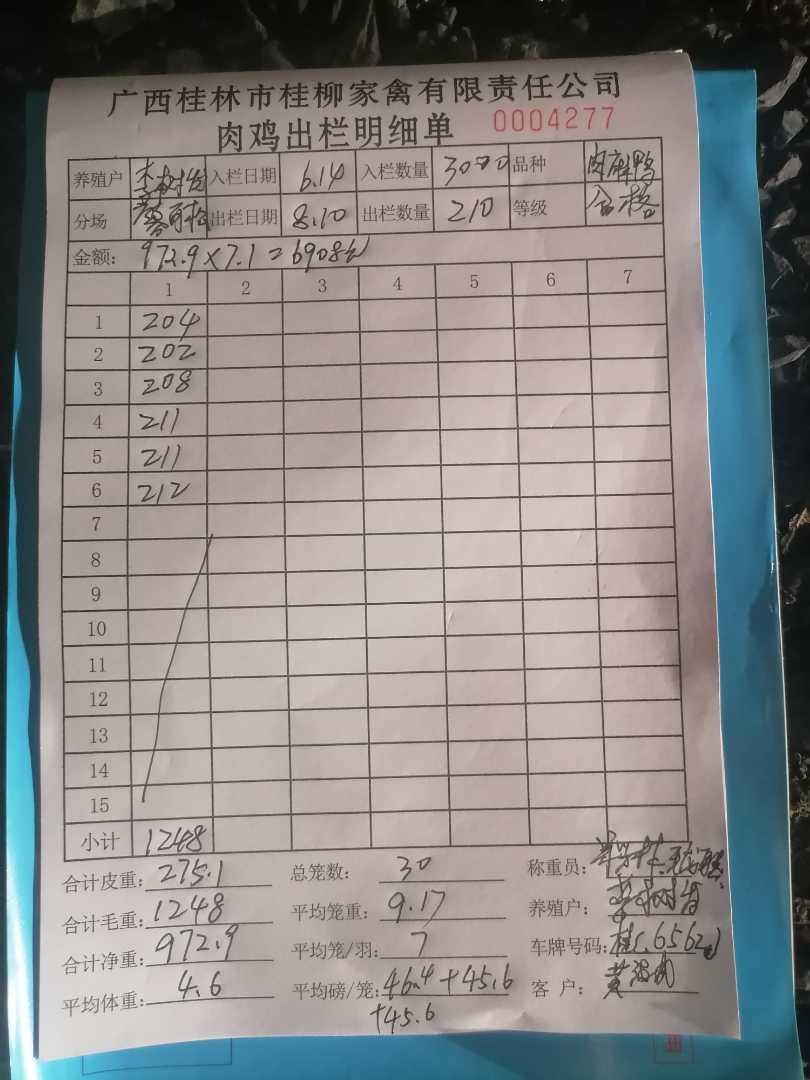 广西桂林市桂柳家禽有限责任公司
肉鸡出栏明细单 0004277
养殖户 入栏日期 6.14 入栏数量 3000 品种 肉麻鸭
分场 出栏日期 8.10 出栏数量 210 等级 合格
金额: 972.9×7.1=6908
1 2 3 4 5 6 7
1 204
2 202
3 208
4 211
5 211
6 212
7
8
9
10
11
12
13
14
15
小计 1248
合计皮重: 275.1 总笼数: 30 称重员:
合计毛重: 1248 平均笼重: 9.17 养殖户:
合计净重: 972.9 平均笼/羽: 7 车牌号码:
平均体重: 4.6 平均磅/笼: 46.4+45.6 客 户: 黄
+45.6